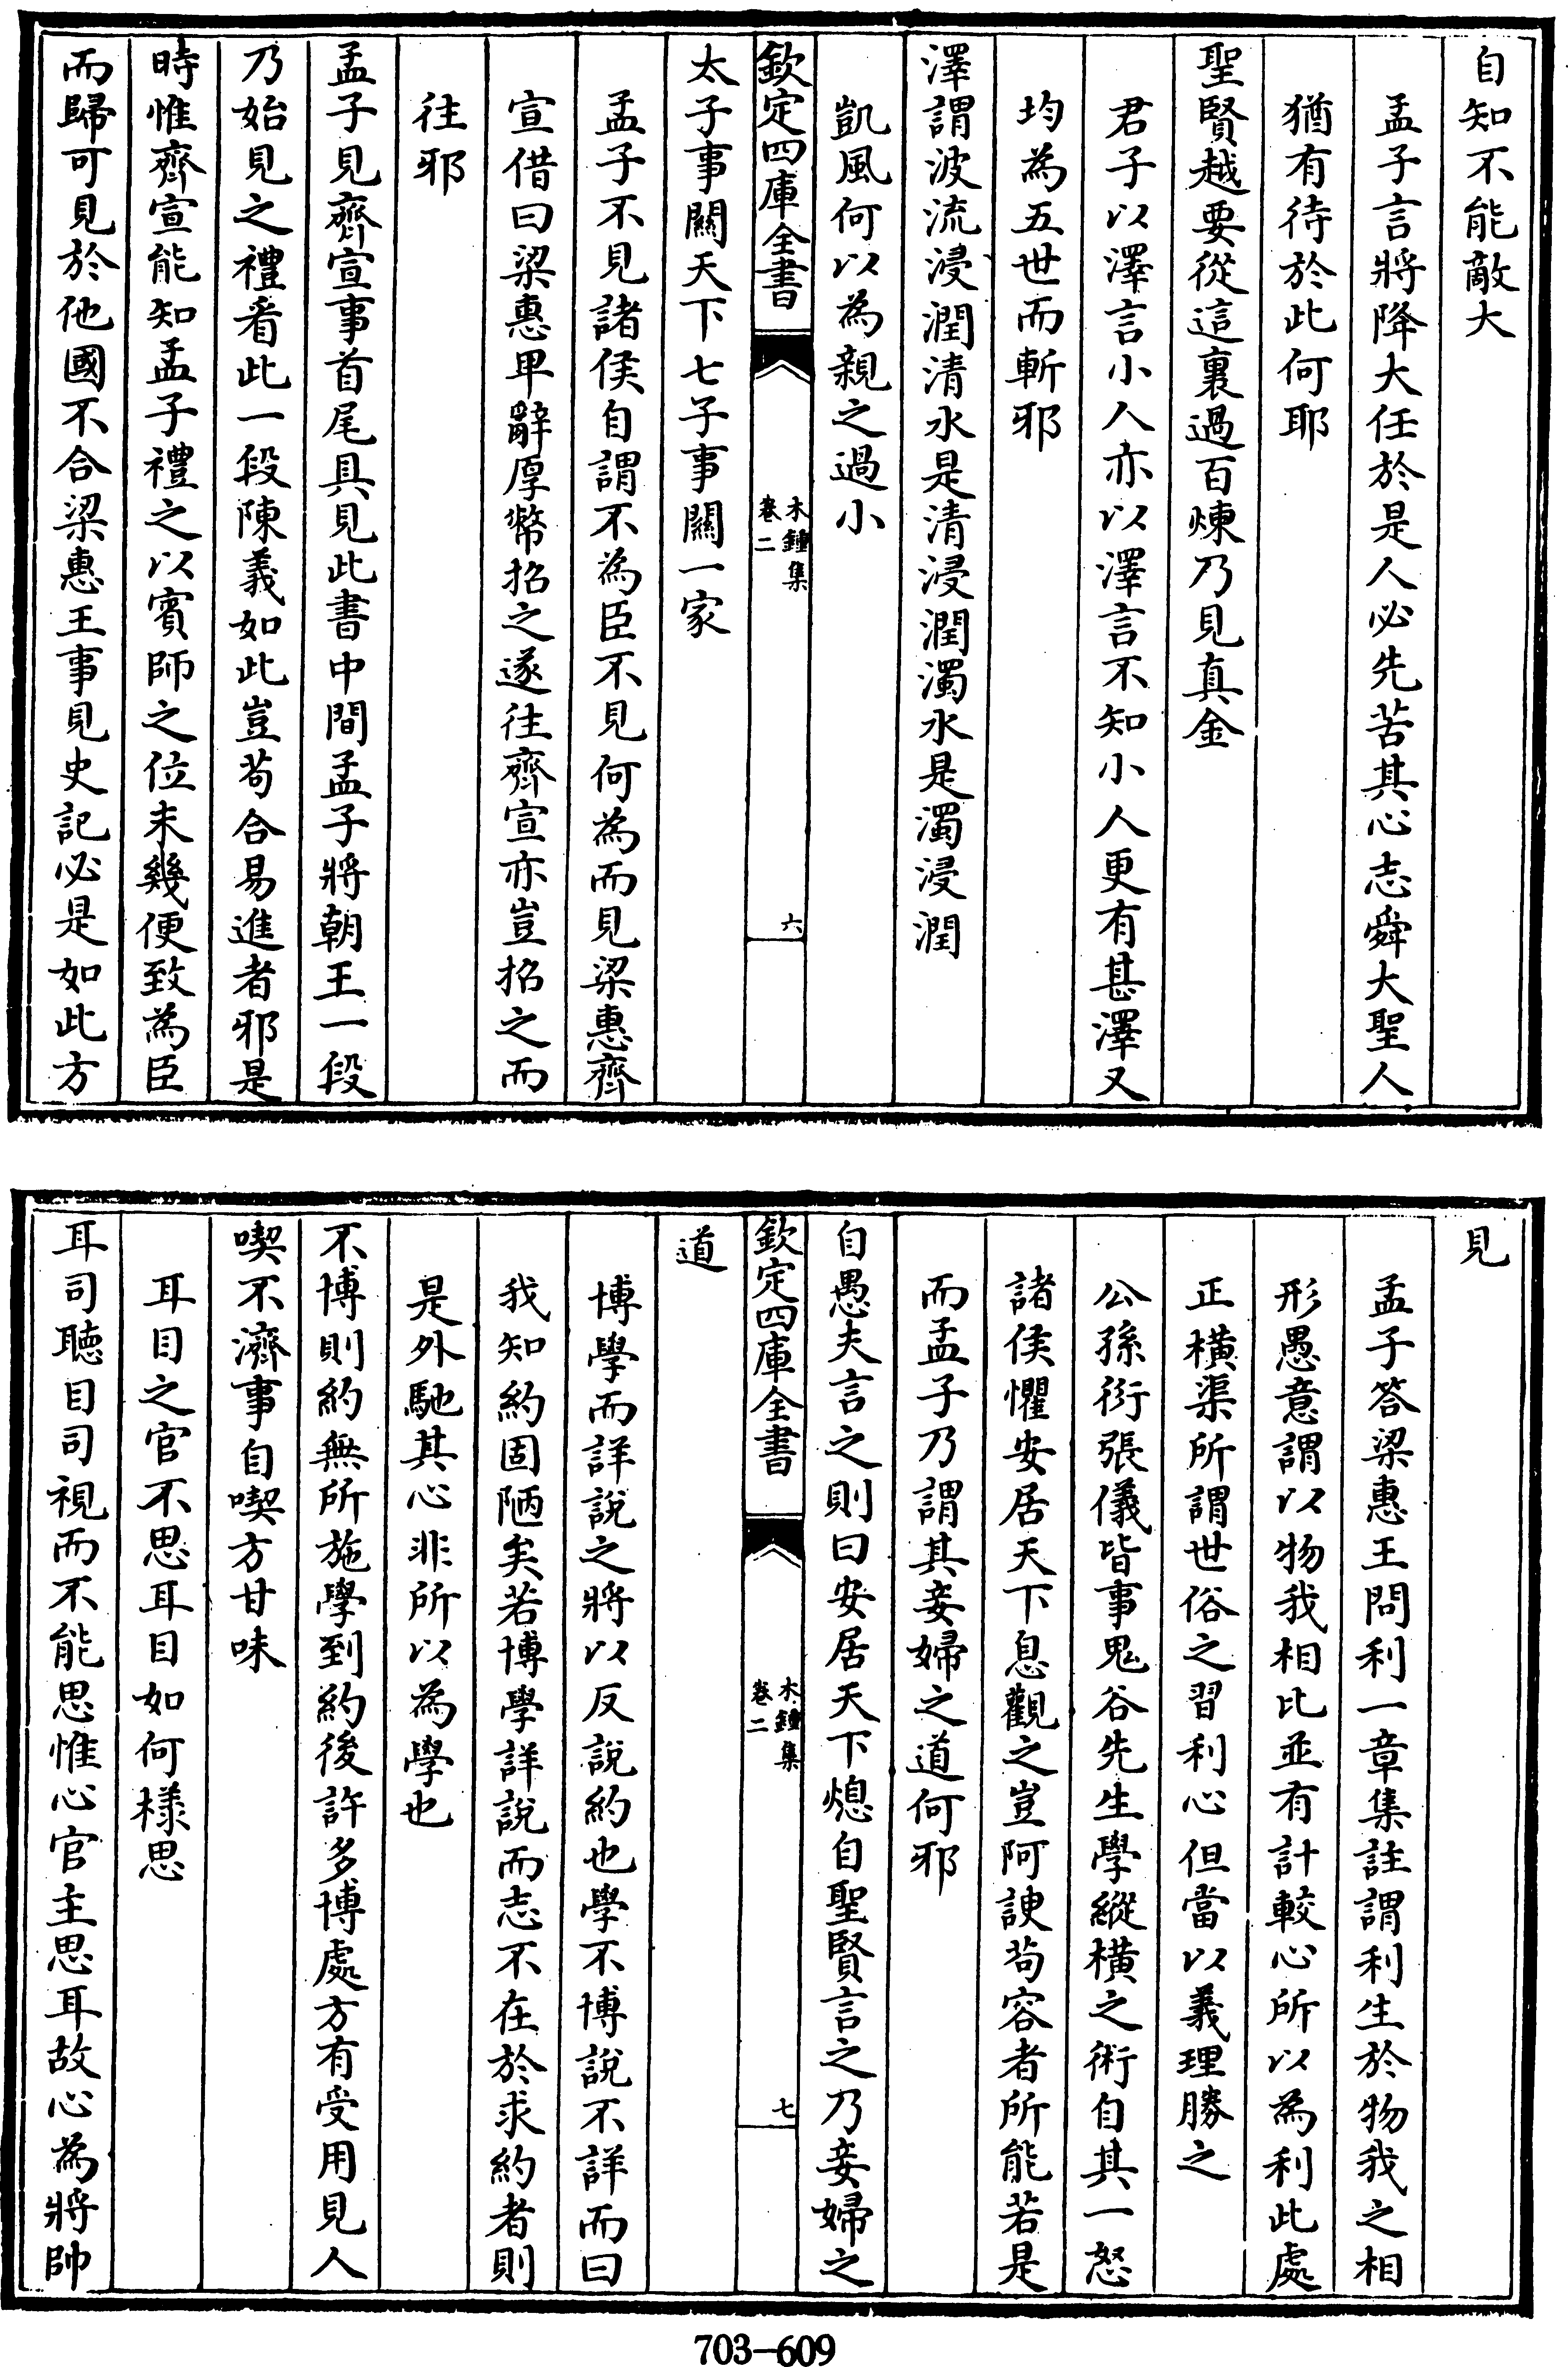 自知不能敵大
孟子言將降大任於是人必先苦其心志舜大聖人
猶有待於此何耶
聖賢越要從這裏過百煉乃見真金
君子以澤言小人亦以澤言不知小人更有甚澤又
均為五世而斬邪
澤謂波流浸潤清水是清浸潤濁水是濁浸潤
凱風何以為親之過小
欽定四庫全書
木鐘集
卷二
六
太子事關天下七子事關一家
孟子不見諸侯自謂不為臣不見何為而見梁惠齊
宣借曰梁惠卑辭厚幣招之遂往齊宣亦豈招之而
往邪
孟子見齊宣事首尾具見此書中間孟子將朝王一段
乃始見之禮看此一段陳義如此豈茍合易進者邪是
時惟齊宣能知孟子禮之以賓師之位未幾便致為臣
而歸可見於他國不合梁惠王事見史記必是如此方
見
孟子答梁惠王問利一章集註謂利生於物我之相
形愚意謂以物我相比並有計較心所以為利此處
正橫渠所謂世俗之習利心但當以義理勝之
公孫衍張儀皆事鬼谷先生學縱橫之術自其一怒
諸侯懼安居天下息觀之豈阿諛茍容者所能若是
而孟子乃謂其妾婦之道何邪
自愚夫言之則曰安居天下熄自聖賢言之乃妾婦之
欽定四庫全書
木鐘集
卷二
七
道
博學而詳說之將以反說約也學不博說不詳而曰
我知約固陋矣若博學詳說而志不在於求約者則
是外馳其心非所以為學也
不博則約無所施學到約後許多博處方有受用見人
喫不濟事自喫方甘味
耳目之官不思耳目如何樣思
耳司聽目司視而不能思惟心官主思耳故心為將帥
703-609